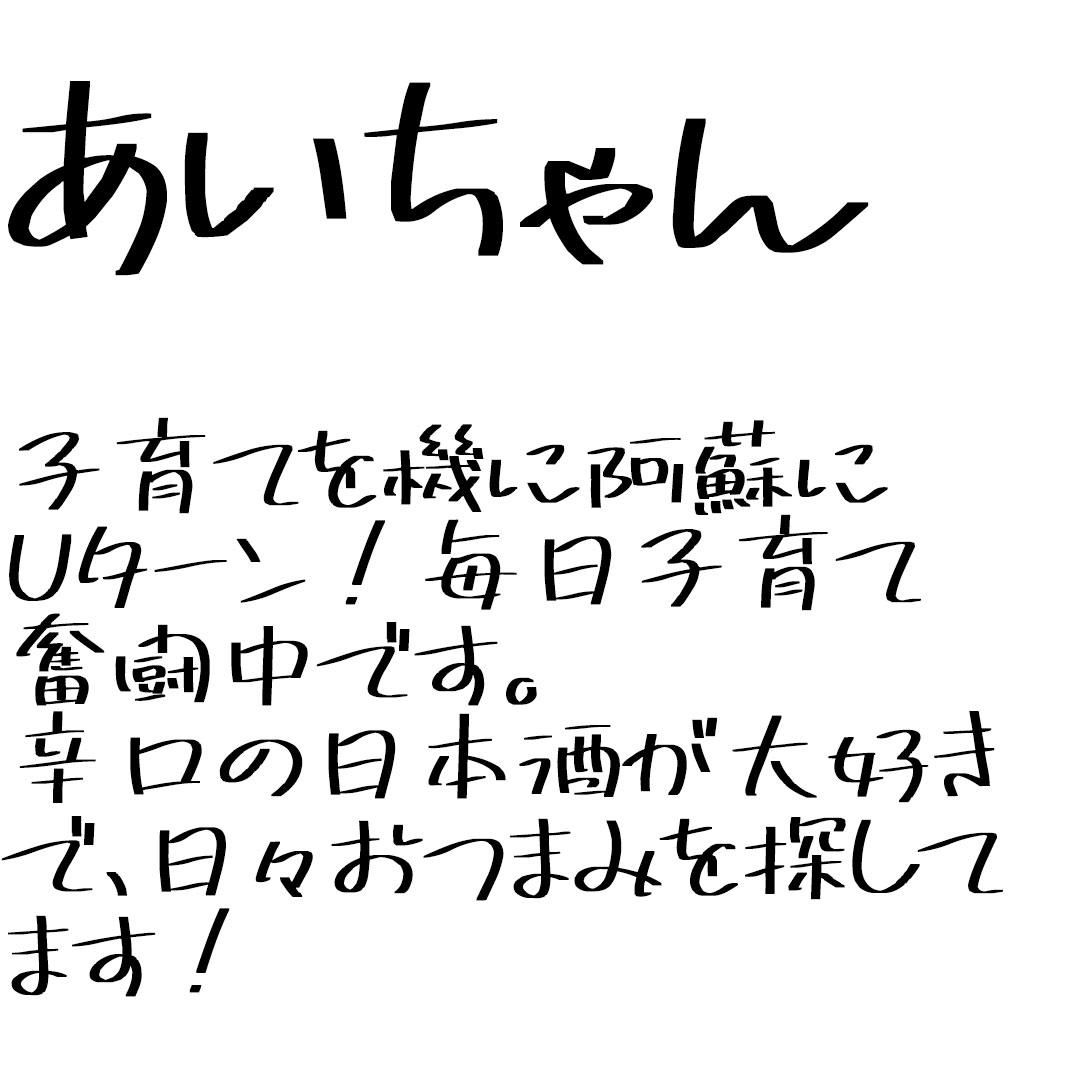 あいちゃん
子育てを機に阿蘇に
Uターン！毎日子育て
奮闘中です。
辛口の日本酒が大好き
で、日々おつまみを探して
ます！